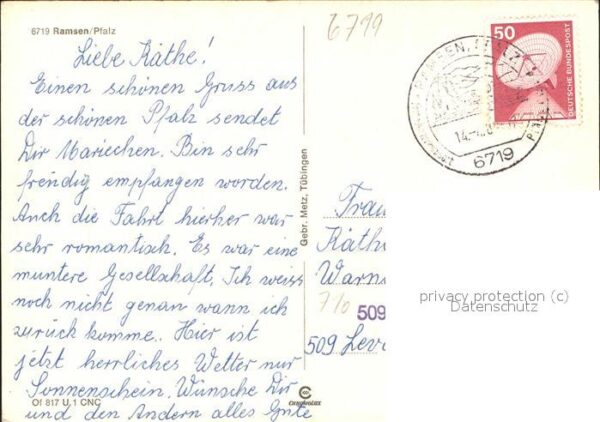 6719 Ramsen/Pfalz
6719
Liebe Käthe!
Einen schönen Gruss aus
der schönen Pfalz sendet
Dir Mariechen. Bin sehr
freudig empfangen worden.
Auch die Fahrt hierher war
sehr romantisch. Es war eine
muntere Gesellschaft. Ich weiss
noch nicht genau wann ich
zurück komme. Hier ist
jetzt herrliches Wetter nur
Sonnenschein. Wünsche Dir
und den Andern alles Gute
Of 817 U.1 CNC
Gebr. Metz, Tübingen
CHROMOLUX
50
DEUTSCHE BUNDESPOST
6719
Frau
Käthe
Warn
710
509
509 Leve
privacy protection (c)
Datenschutz